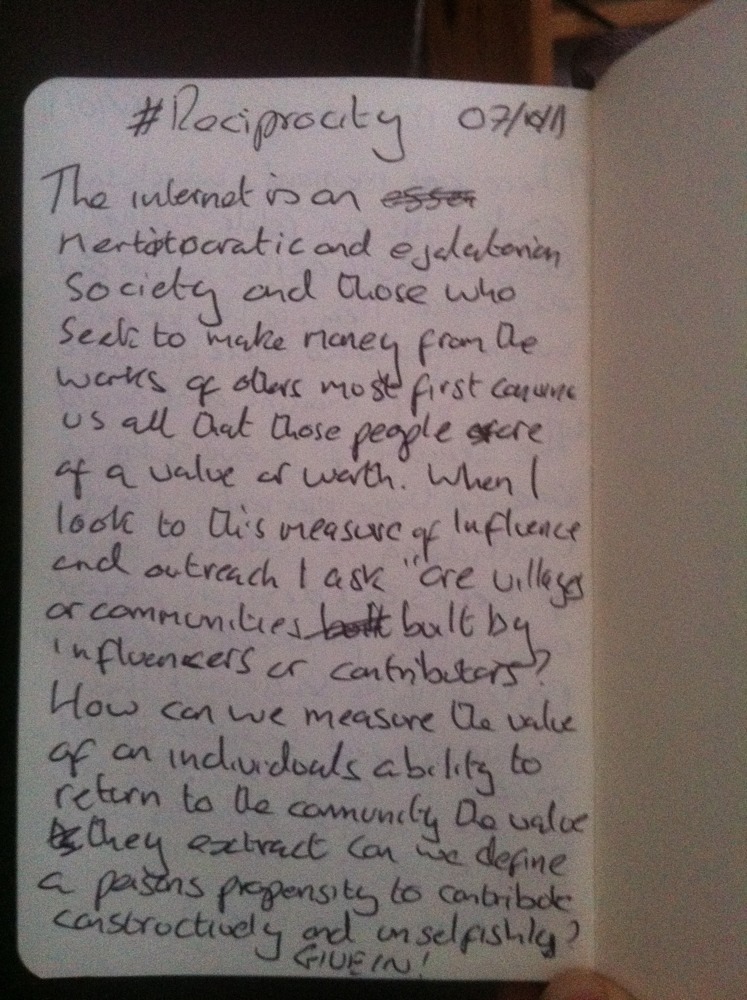 #Reciprocity 07/10/11
The internet is an
and egalatarian
Society and those who
Seek to make money from the
works of others most first convince
us all that those people are
of a value or worth. When I
look to this measure of Influence
and outreach I ask "are villages
or communities built by
influencers or contributors?
How can we measure the value
of an individuals ability to
return to the community the value
they extract can we define
a persons propensity to contribute
constructively and unselfishly?
GIVE IN!